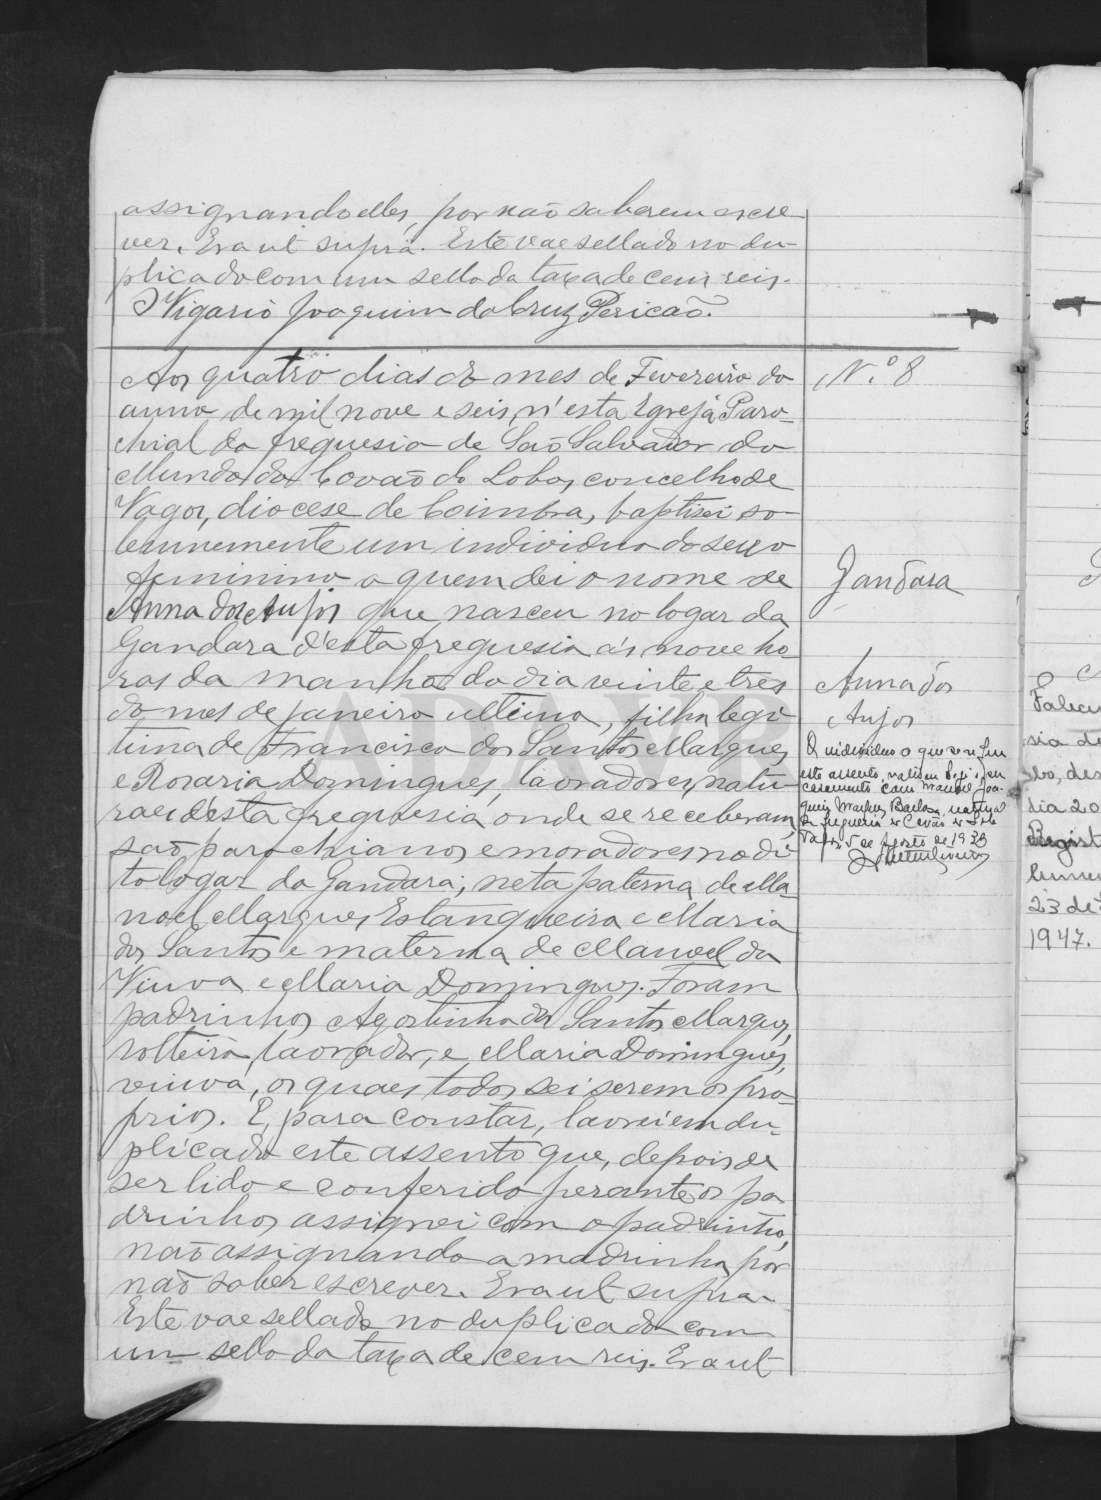 assignando elles, por não saberem escre
ver. Era ut supra. Este vae sellado no du-
plicado com um sello da taxa de cem reis.
O Vigario Joaquim da Cruz Pericão.
Nº 8
Aos quatro dias do mes de Fevereiro do
anno de mil nove e seis, n'esta Egreja Paro-
chial da freguesia de São Salvador do
Mundo do Covão do Lobo, concelho de
Vagos, diocese de Coimbra, baptisei so
lemnemente um individuo do sexo
feminino a quem dei o nome de
Anna dos Anjos que nasceu no logar da
Gandara d'esta freguesia ás nove ho-
ras da manhã do dia vinte e tres
do mes de Janeiro ultimo, filha legi-
tima de Francisco dos Santos Marques
e Rosaria Domingues, lavradores, natu-
raes d'esta freguesia onde se receberam,
são parochianos e moradores no di
to logar da Gandara; neta paterna de Ma
noel Marques Estanqueiro e Maria
dos Santos e materna de Manoel da
Viuva e Maria Domingues. Foram
padrinhos Agostinho dos Santos Marques,
solteiro, lavrador, e Maria Domingues,
viuva, os quaes todos sei serem os pro-
prios. E, para constar, lavrei em du-
plicado este assento que, depois de
ser lido e conferido perante os pa
drinhos, assignei com o padrinho,
não assignando a madrinha, por
não saber escrever. Era ut supra.
Este vae sellado no duplicado com
um sello da taxa de cem reis. Era ut
Gandara
Anna dos
Anjos
O individuo a que se refere
este assento, casamento com Manuel Joa-
quim Marques natural
da freguesia de Covão do Lobo
5 de Agosto de 1923
Falec
sia d
bo, des
dia 20
Regist
23 de
1947.
ADAVR